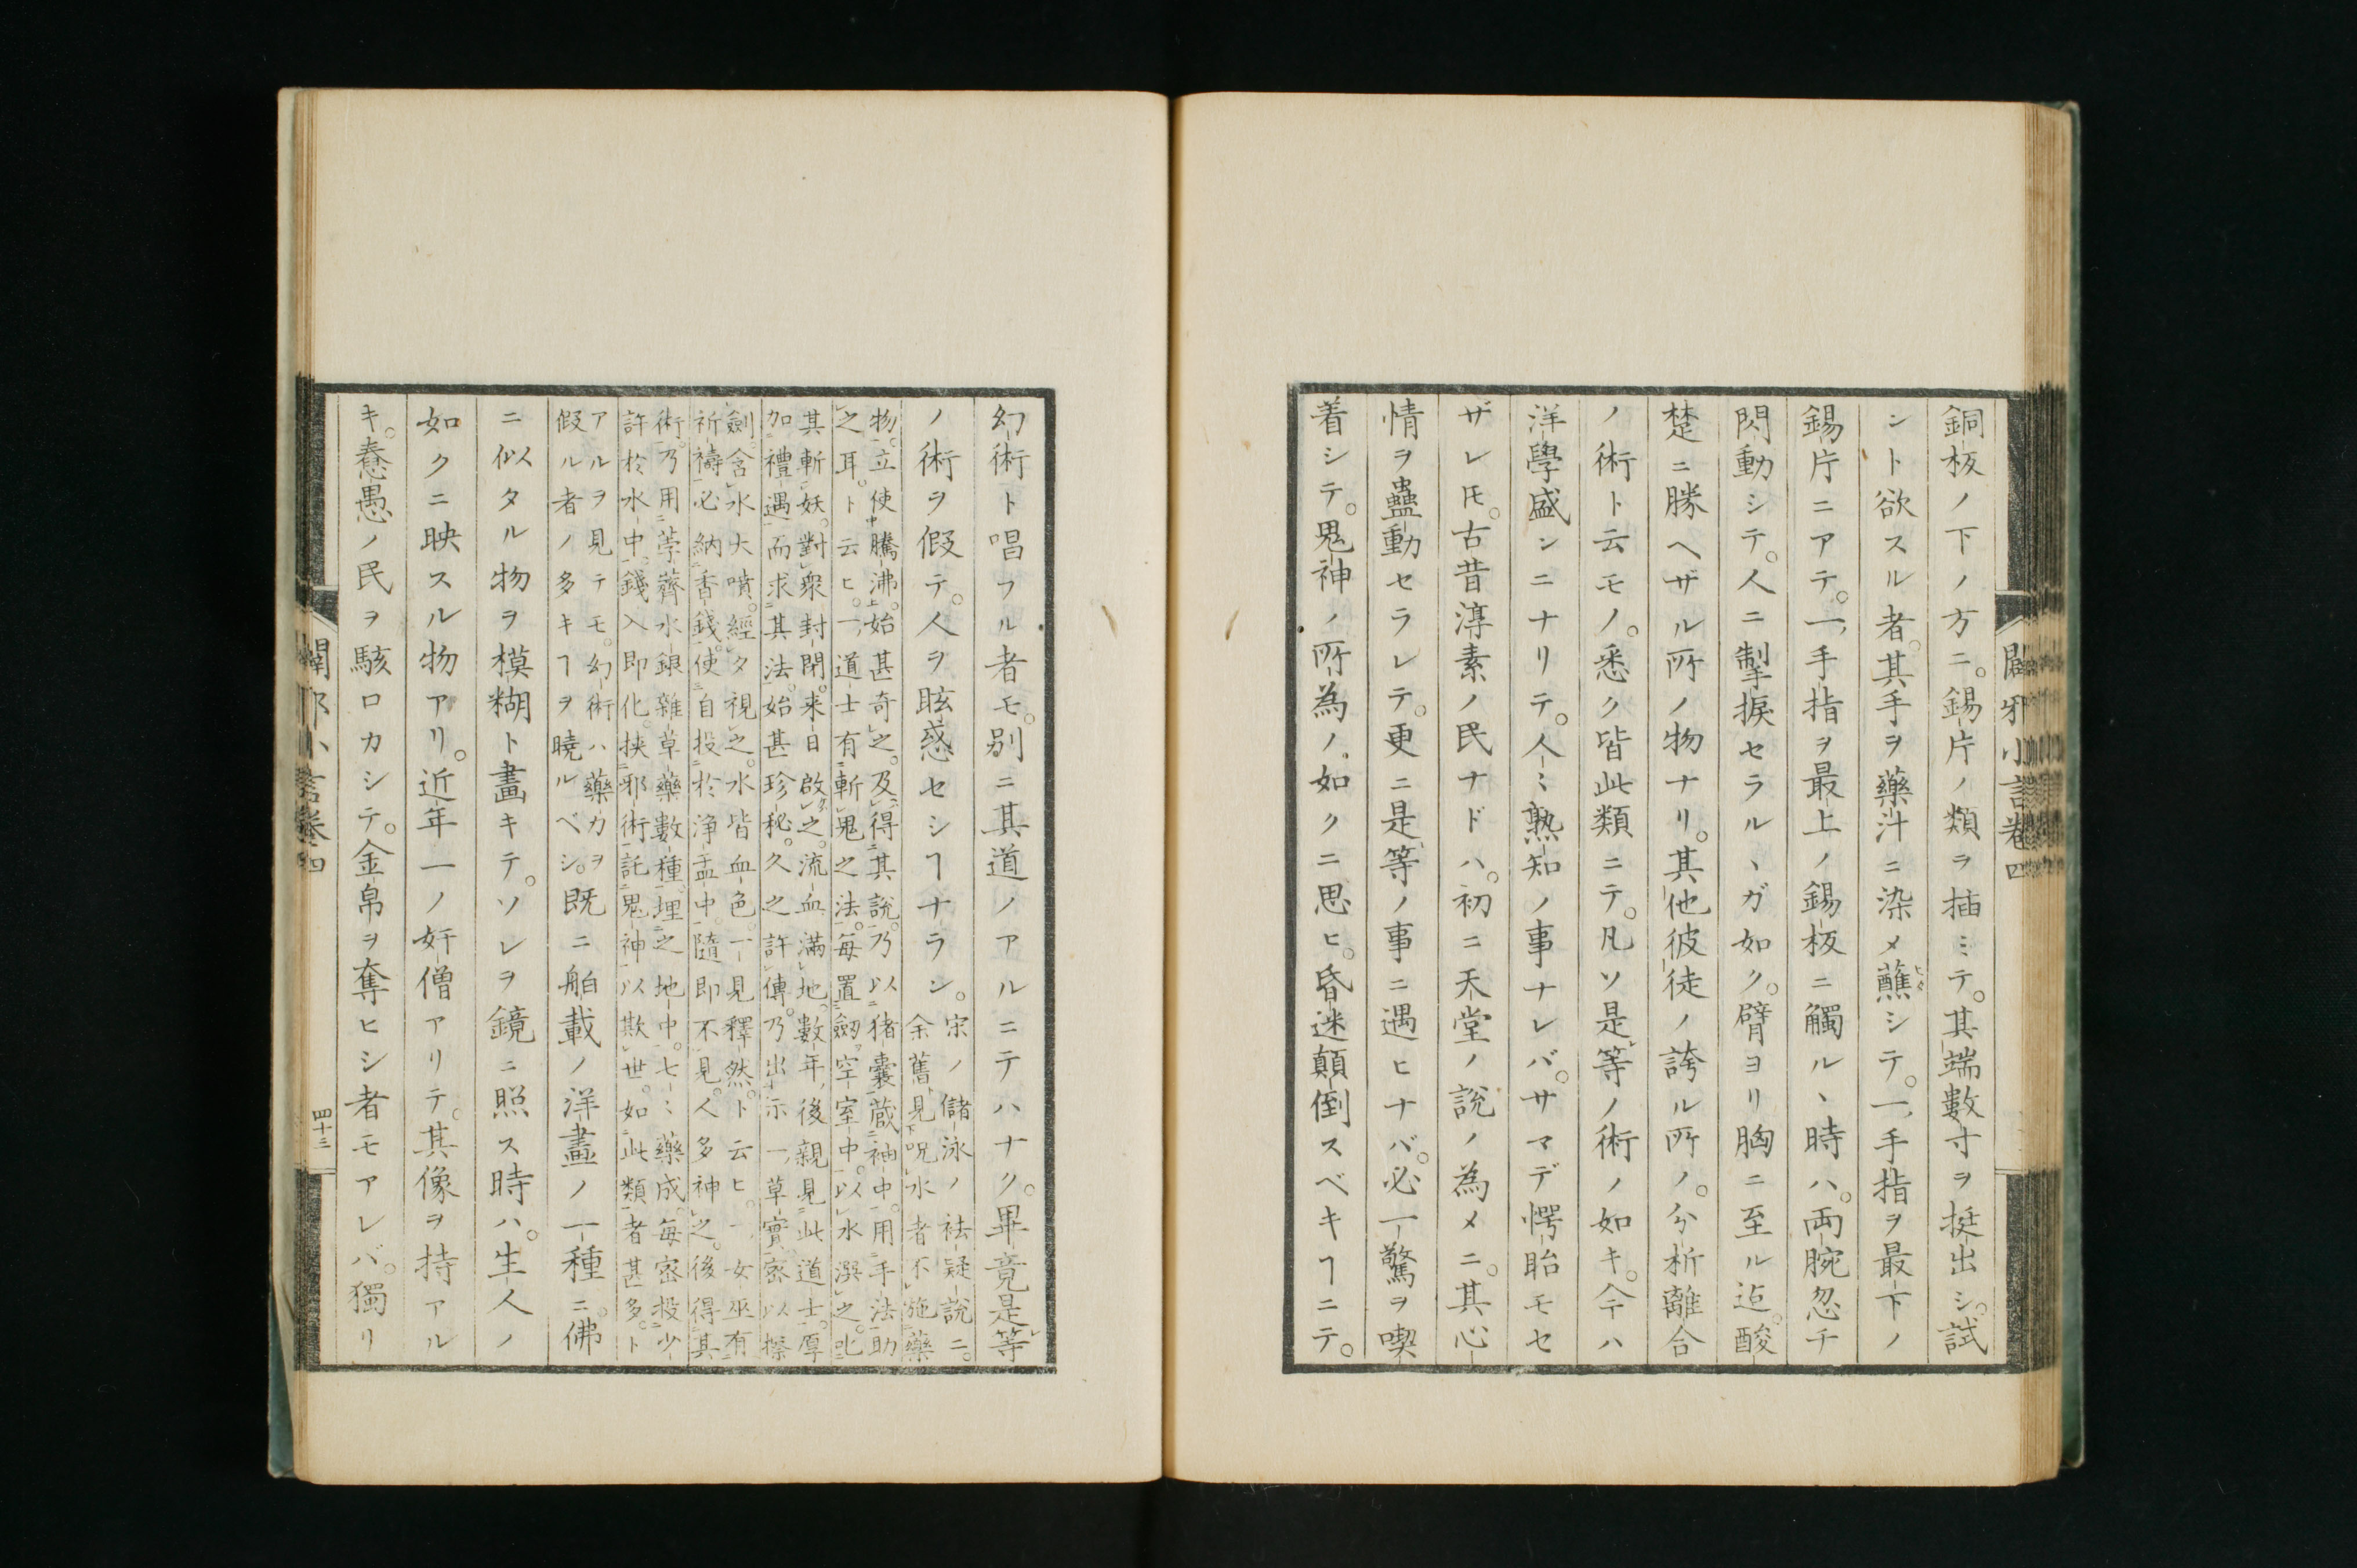 闢邪小言卷四
銅板ノ下ノ方ニ。錫片ノ類ヲ插ミテ。其端數寸ヲ挺出シ。試
シト欲スル者。其手ヲ藥汁ニ染メ蘸シテ。一手指ヲ最下ノ
錫片ニアテ。一手指ヲ最上ノ錫板ニ觸ルヽ時ハ。両腕忽チ
閃動シテ。人ニ掣捩セラルヽガ如ク。臂ヨリ胸ニ至ル迠。酸
楚ニ勝ヘザル所ノ物ナリ。其他彼徒ノ誇ル所ノ。分析離合
ノ術ト云モノ。悉ク皆此類ニテ。凡ソ是等ノ術ノ如キ。今テハ
洋學盛ンニナリテ。人〻熟知ノ事ナレバ。サマデ愕眙モセ
ザレ𪜈。古昔淳素ノ民ナドハ。初ニ天堂ノ說ノ為メニ。其心
情ヲ蠱動セラレテ。更ニ是等ノ事ニ遇ヒナバ。必一驚ヲ喫
着シテ。鬼神ノ所為ノ如クニ思ヒ。昏迷顛倒スベキヿニテ。
幻術ト唱フル者モ。別ニ其道ノアルニテハナク。畢竟是等
ノ術ヲ假テ。人ヲ眩惑セシヿナラン。宋ノ儲泳ノ祛疑說ニ。
余舊見呪水者不施藥
物。立使騰沸。始甚奇之。及得其說。乃以猪囊蔵袖中。用手法助
之耳。ト云ヒ。一道士有斬鬼之法。每置劔空室中。以水潠之。叱
其斬妖。對衆封閉。来日啟之。流血滿地。數年後親見此道士。厚
加禮遇而求其法。始甚珍秘。久之許傳。乃出示一草實。密以搽
劍。含水大噴。經夕視之。水皆血色。一見釋然。ト云ヒ。一女巫有
祈禱必納香錢。使自投於浄盂中。隨即不見。人多神之。後得其
術。乃用荸薺水銀雜草藥數種。埋之地中。七〻藥成。每密投少
許於水中。錢入即化。挾邪術託鬼神以欺世。如此類者甚多。ト
アルヲ見テモ。幻術ハ藥力ヲ
假ル者ノ多キヿヲ曉ルベシ。既ニ舶載ノ洋畫ノ一種ニ。佛
ニ似タル物ヲ模糊ト畫キテ。ソレヲ鏡ニ照ス時ハ。生人ノ
如クニ映スル物アリ。近年一ノ奸僧アリテ。其像ヲ持アル
キ。惷愚ノ民ヲ駭ロカシテ。金帛ヲ奪ヒシ者モアレバ。獨リ
闢邪小言卷四
四十三